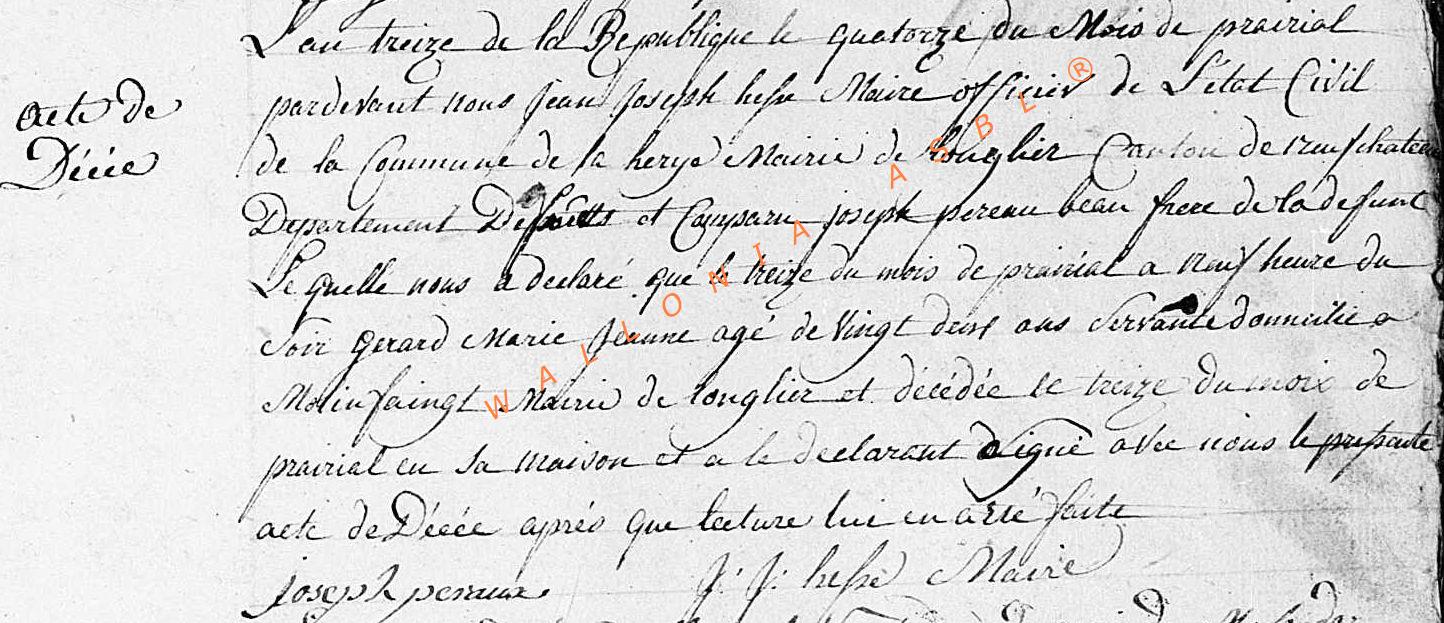 acte de
Décée
L'an treize de la Republique le quatorze du Mois de prairial
pardevant nous Jean Joseph hesse Maire officier de L'etat Civil
de la Commune de la herye Mairie de longlier Canton de neufchateau
Departement Desforets et Comparu joseph pereau beau frere de la defunt
Le quelle nous a declaré que le treize du mois de prairial a neuf heure du
Soir Gerard Marie Jeanne agé de Vingt deux ans Servante domicilié a
Molinfaingt Mairie de longlier et décédée le treize du mois de
prairial en sa maison et a le declarant Signé avec nous le presente
acte de Décée aprés que lecture lui en a été faite
joseph peraux J: J: hesse Maire
WALLONIA ASBL ®